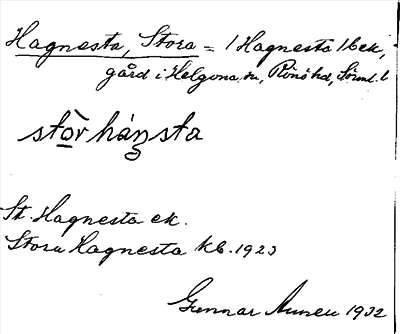 Hagnesta, Stora = 1 Hagnesta 1 6 ek,
gård i Helgona sn, Rönö hd, Sörml. l
stòr hán̡sta
St. Hagnesta ek.
Stora Hagnesta kb. 1923
Gunnar 1932